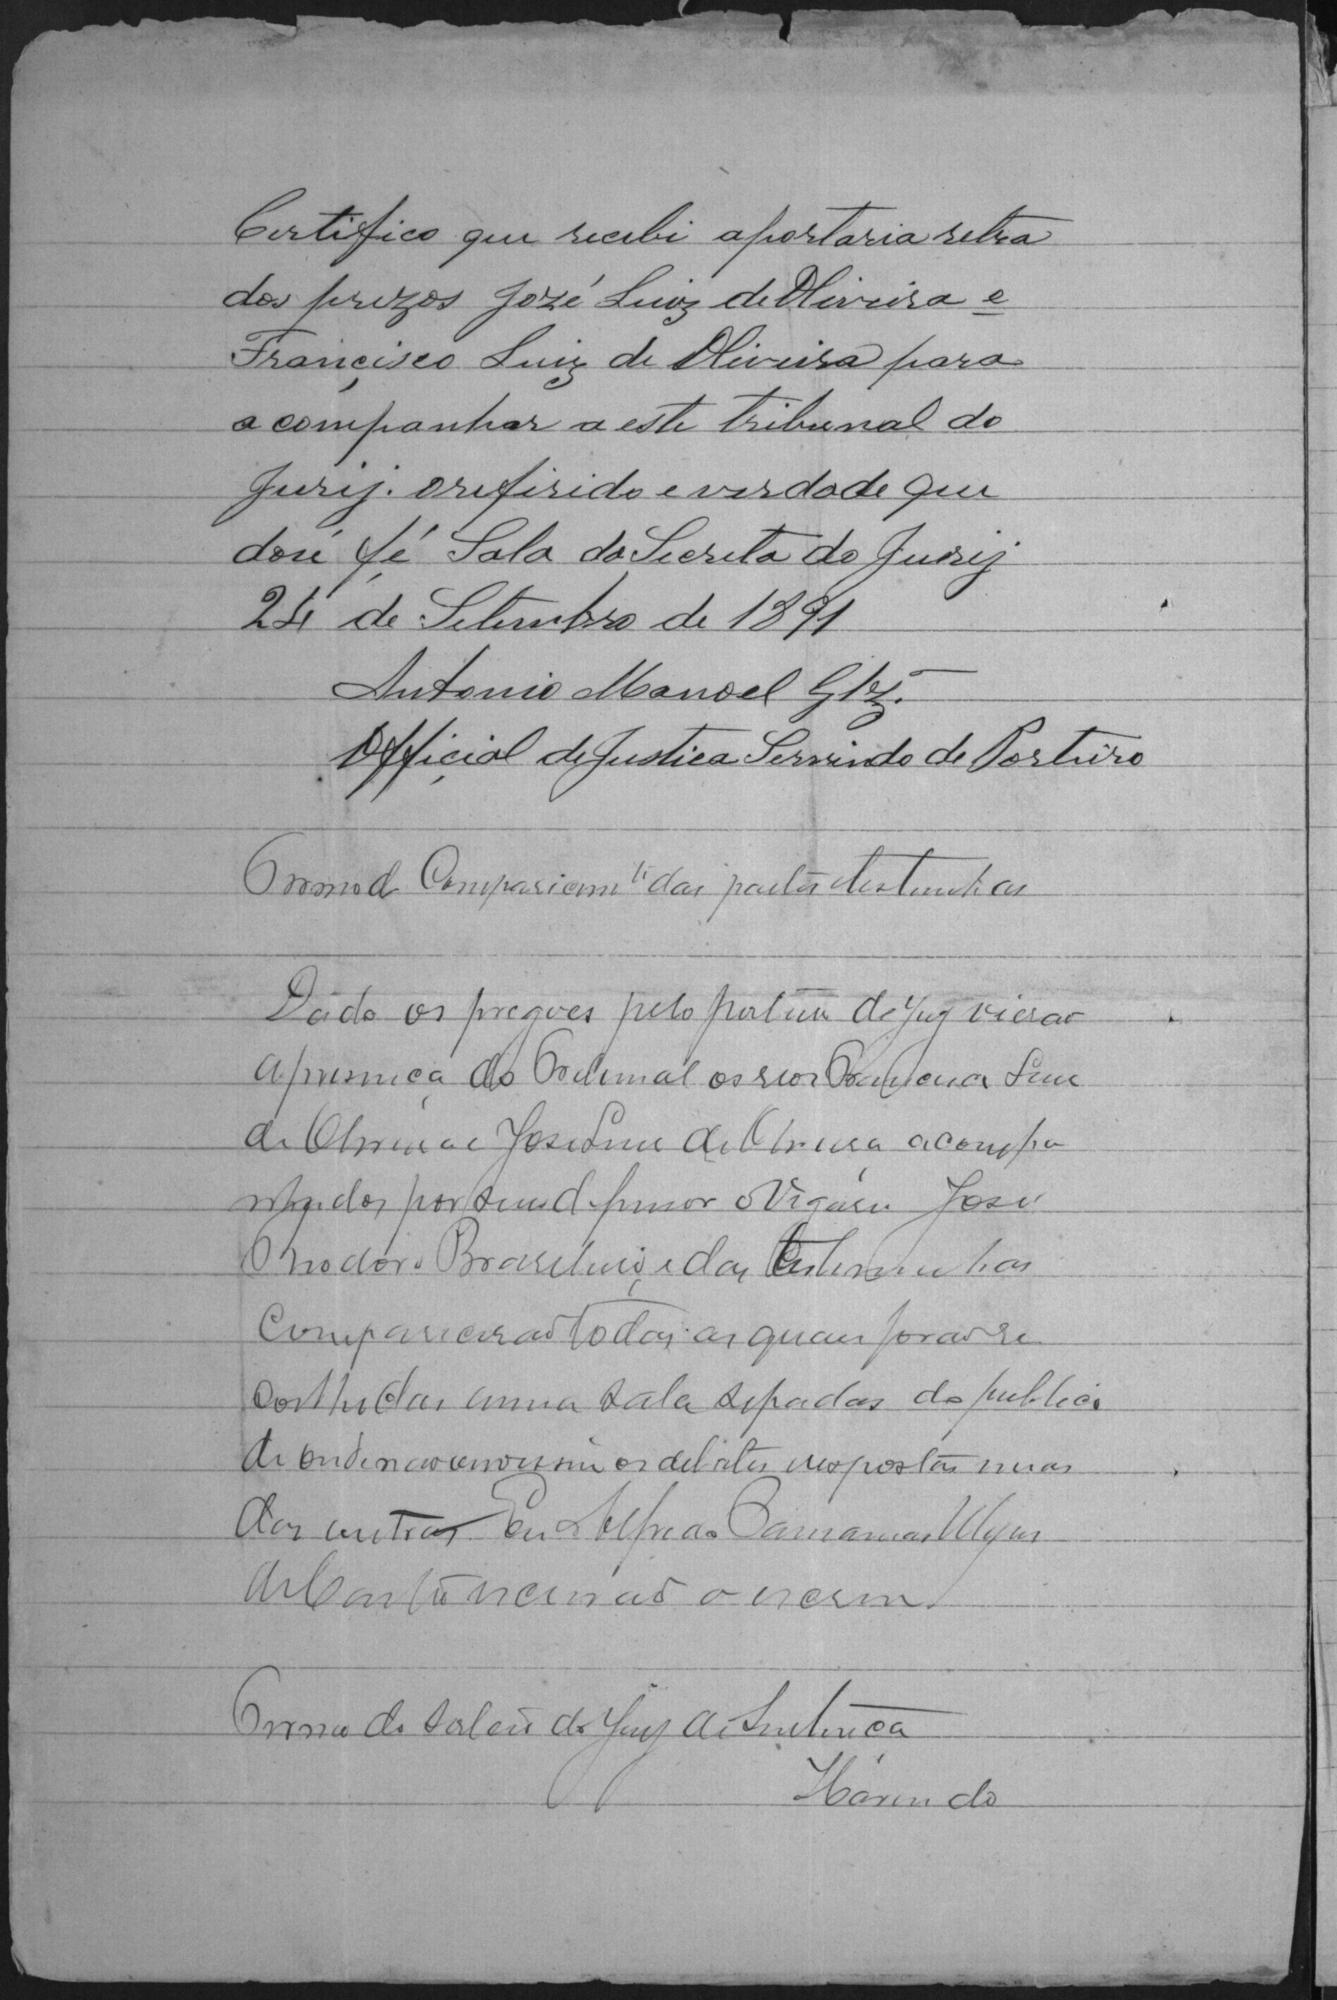 Certifico que recebi aportaria retra
dos prezos José Luiz de Oliveira e
Françisco Luiz de Oliveira para
acompanhar a este tribunal do
Jurij. o refirido e verdade que
doú fé Sala da Secreta do Jurij
24 de Setembro de 1891
Antonio Manoel Glz.
Offiçial de Justica Servindo de Porteiro
Termo d Comparicim.to das partes e testemunhas
Dado os pregoes pelo porteiro do Jury vierao
a presença do Tribunal os reos Francisco Luiz
de Oliveira e Jose Luiz de Oliveira acompa
nhados por seu defensor o Vigario José
Theodoro Brasileiro, e das testemunhas
Comparecerao todas as quaes forao re
colhidas numa sala sepadas do publico
de onde nao ouvissem os debates e respostas umas
das outras Eu Alfredo
escrivao o escrevi
Termo do sorteio do Jury de Sentença
Havendo